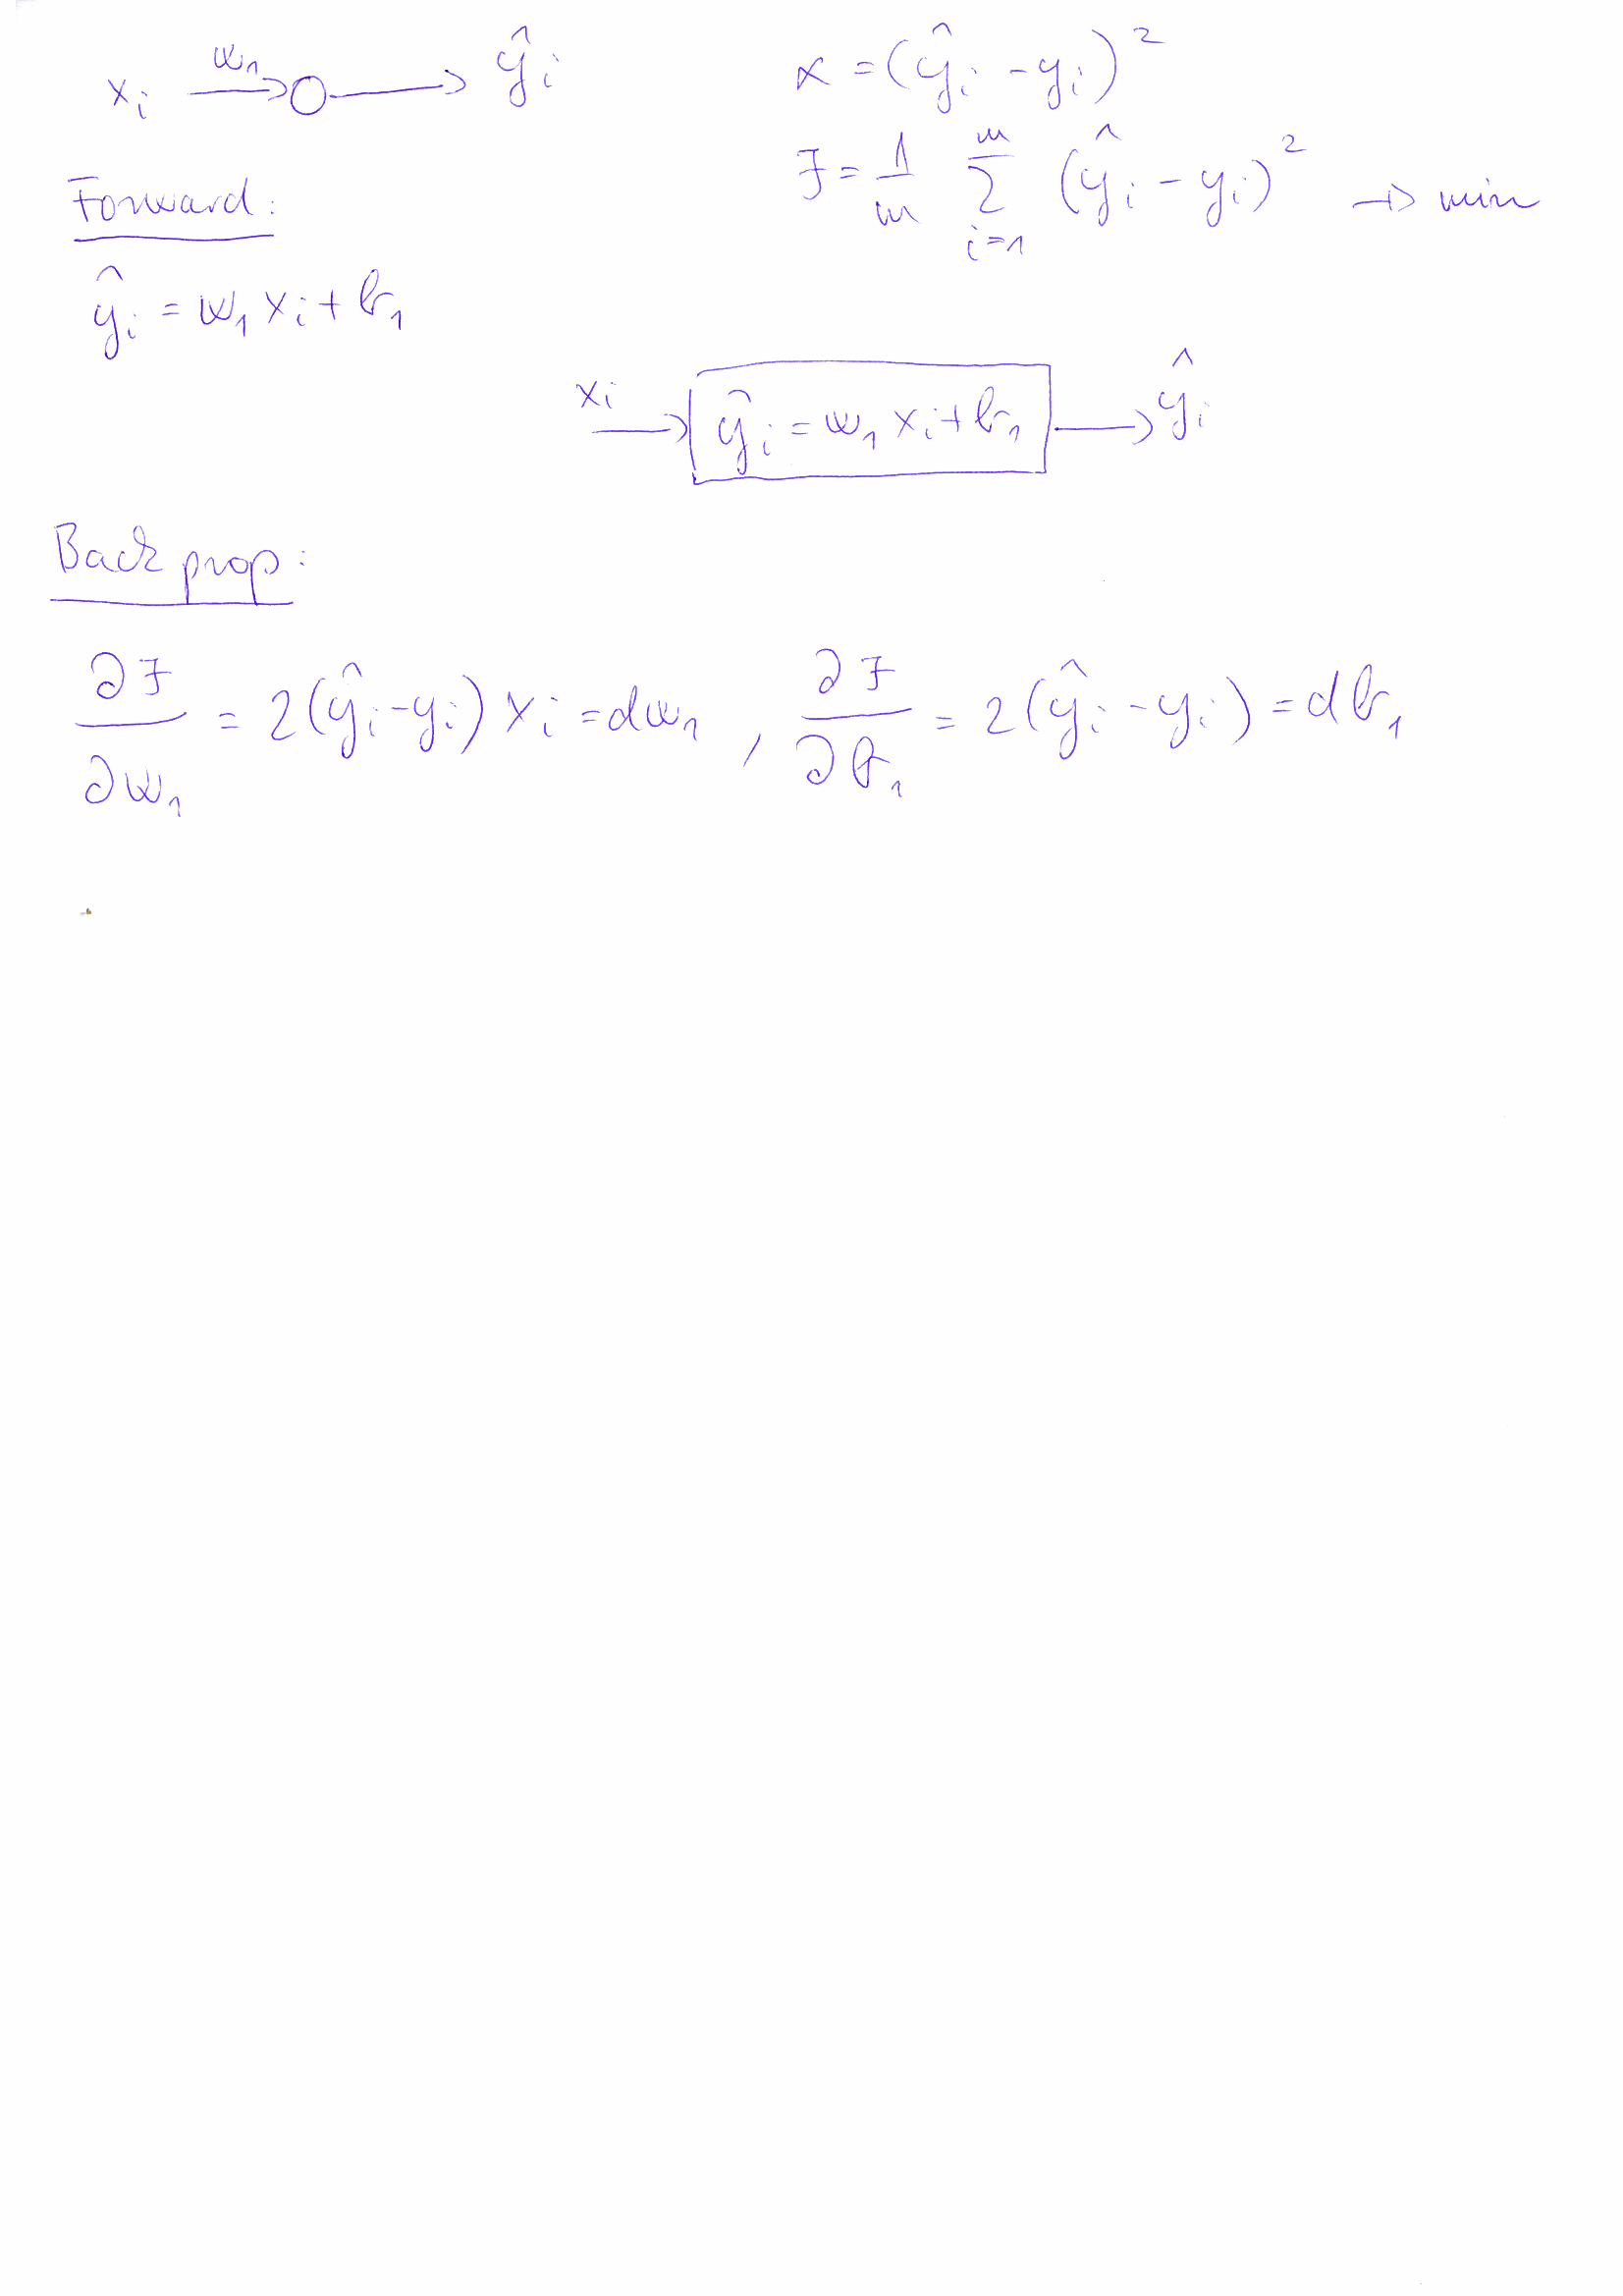 xᵢ w₁ → O → ŷᵢ
α = (ŷᵢ - yᵢ)²
J = 1/m Σᵢ₌₁ᵐ (ŷᵢ - yᵢ)² → min
Forward:
ŷᵢ = w₁ xᵢ + b₁
xᵢ → ŷᵢ = w₁ xᵢ + b₁ → ŷᵢ
Back prop:
∂J/∂w₁ = 2(ŷᵢ - yᵢ) xᵢ = dw₁ , ∂J/∂b₁ = 2(ŷᵢ - yᵢ) = db₁